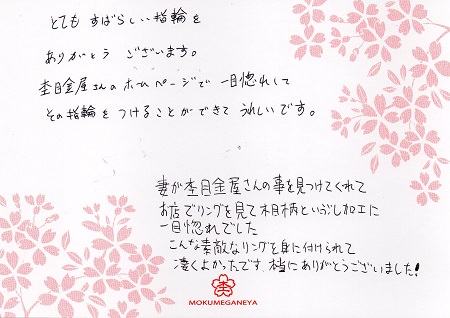 とても すばらしい指輪を
ありがとう ございます。
杢目金屋さんのホームページで一目惚れして
その指輪を つけることができて うれしいです。
妻が杢目金屋さんの事を見つけてくれて
お店でリングを見て木目柄といぶし加工に
一目惚れでした
こんな素敵なリングを身に付けられて
凄くよかったです。本当にありがとうございました!
杢
MOKUMEGANEYA